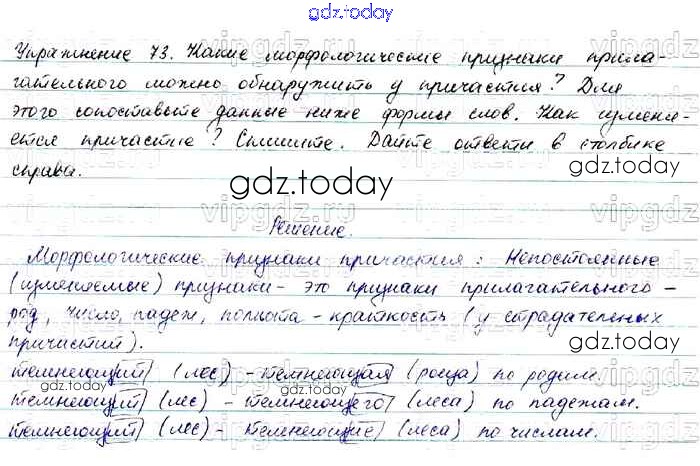 gdz.today
Упражнение 73. Какие морфологические признаки прила-
гательного можно обнаружить у причастия? Для
этого сопоставьте данные ниже формы слов. Как изменя-
ется причастие? Спишите. Дайте ответы в столбике
справа.
gdz.today
Решение.
Морфологические признаки причастия: Непостоянные
(изменяемые) признаки - это признаки прилагательного -
род, число, падеж, полнота - краткость (у страдательных
причастий).
темнеющий (лес) - темнеющая (роща) по родам.
gdz.today
темнеющий (лес) - темнеющего (леса) по падежам.
темнеющий (лес) - темнеющие (леса) по числам.